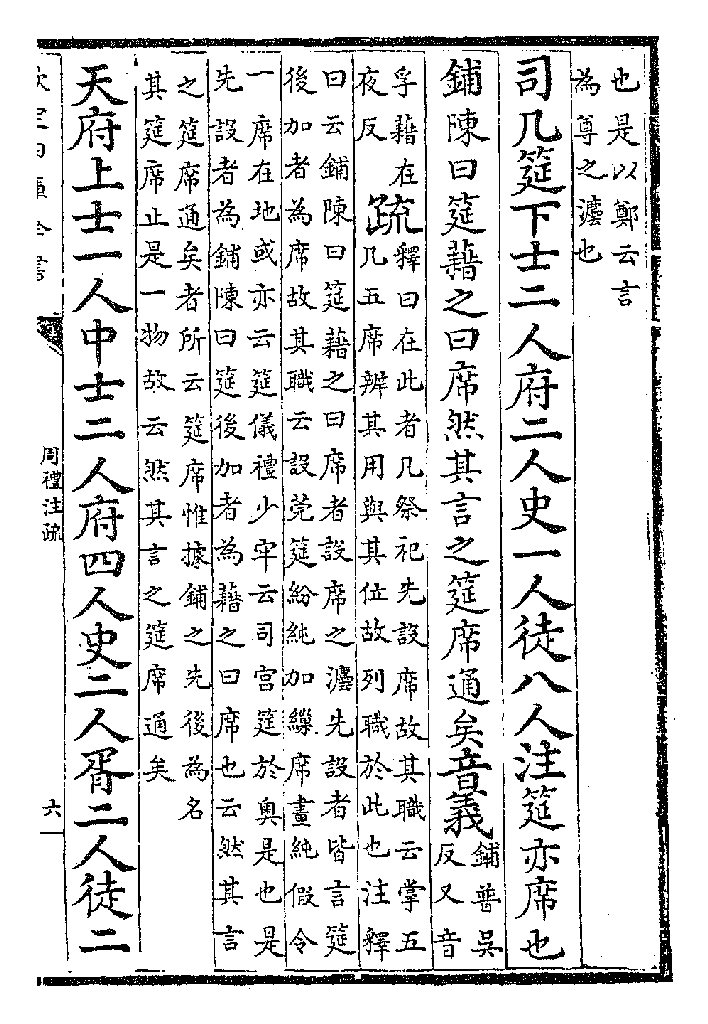 也是以鄭云言
為尊之灋也
司几筵下士二人府二人史一人徒八人注筵亦席也
鋪陳曰筵藉之曰席然其言之筵席通矣音義
鋪普吳
反又音
孚藉在
夜反
疏
釋曰在此者凡祭祀先設席故其職云掌五
几五席辨其用與其位故列職於此也注釋
曰云鋪陳曰筵藉之曰席者設席之灋先設者皆言筵
後加者為席故其職云設莞筵紛純加繅席畫純假令
一席在地或亦云筵儀禮少牢云司宮筵於奧是也是
先設者為鋪陳曰筵後加者為藉之曰席也云然其言
之筵席通矣者所云筵席惟據鋪之先後為名
其筵席止是一物故云然其言之筵席通矣
天府上士一人中士二人府四人史二人胥二人徒二
周禮注疏
六